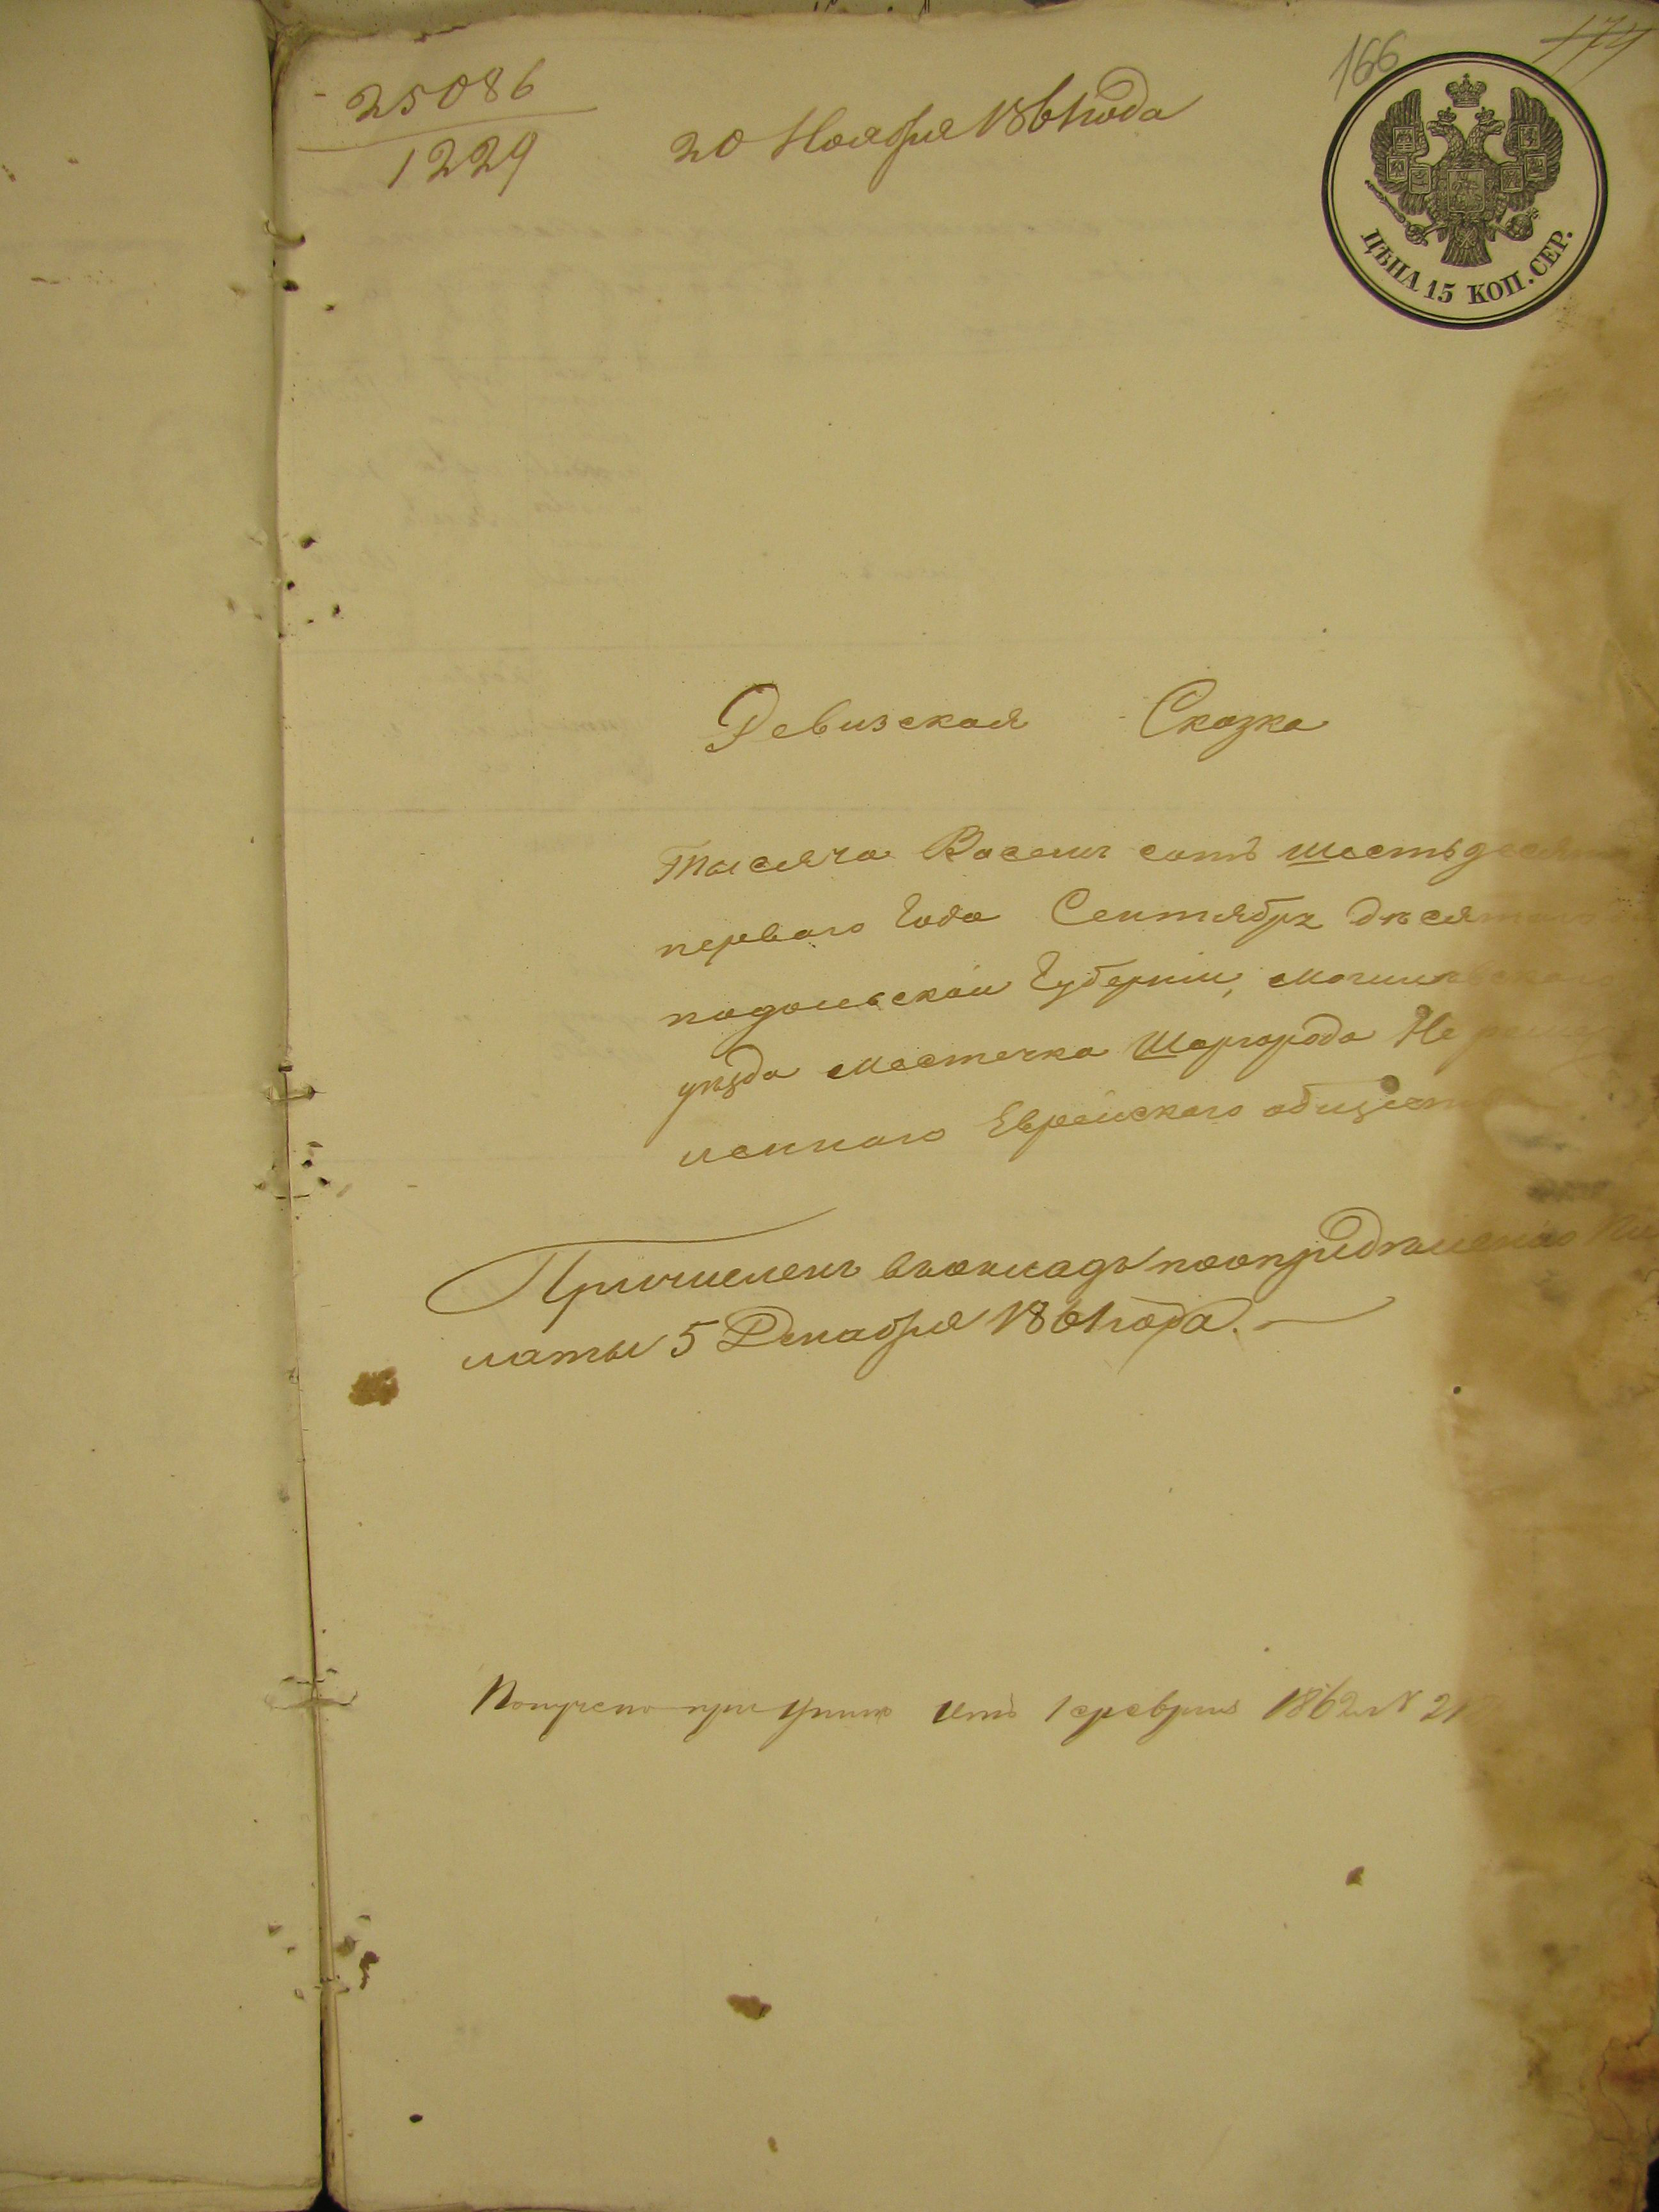 166
174
25086
1229
20 Ноября 1861 года
ЦѢНА 15 КОП. СЕР.
Ревизская Сказка
Тысяча Восемь сотъ шестьдесят
перваго Года Сентября дѣсятаго
подольской Губерніи, могилевского
уѣзда местечка Шаргорода Не
леннаго Еврейского обществ
Причислены въ окладъ по опредѣленію Па
латы 5 Декабря 1861 года.
Получено при Указѣ отъ 1 февраля 1862 № 21